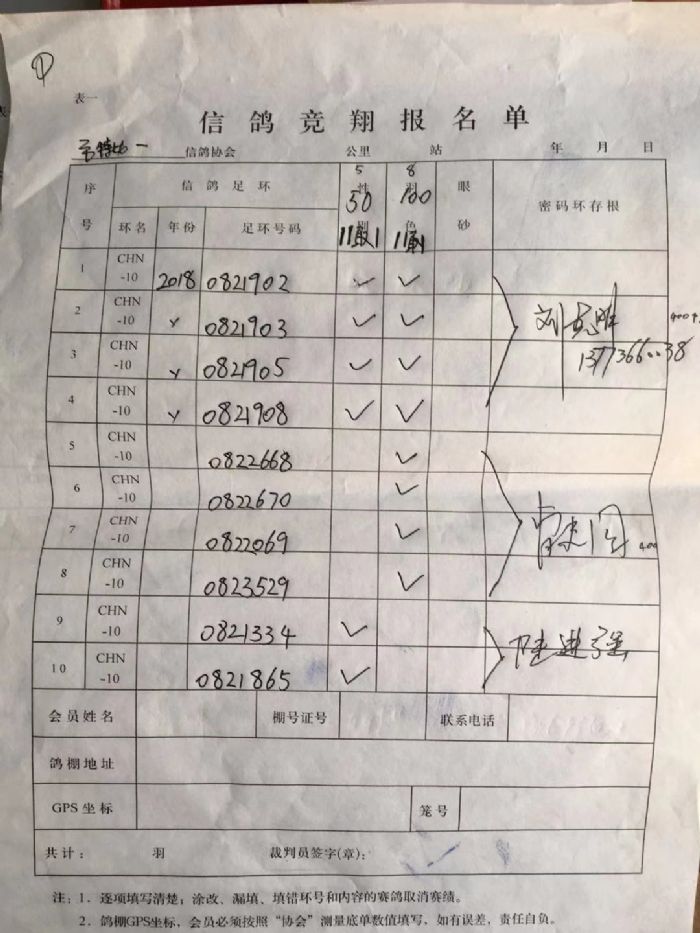 ①
表一
信鸽竞翔报名单
信鸽协会 公里 站 年 月 日
序号 信鸽足环 5 8 眼砂 密码环存根
50 100
环名 年份 足环号码 11取1 11取1
1 CHN-10 2018 0821902 ✓ ✓
2 CHN-10 Y 0821903 ✓ ✓ 刘 400
3 CHN-10 Y 0821905 ✓ ✓
4 CHN-10 Y 0821908 ✓ ✓
5 CHN-10 0822668 ✓
6 CHN-10 0822670 ✓
7 CHN-10 0822069 ✓ 400
8 CHN-10 0823529 ✓
9 CHN-10 0821334 ✓ 陆进强
10 CHN-10 0821865 ✓
会员姓名 棚号证号 联系电话
鸽棚地址
GPS坐标 笼号
共计: 羽 裁判员签字(章):
注:1.逐项填写清楚;涂改、漏填、填错环号和内容的赛鸽取消赛绩。
2.鸽棚GPS坐标,会员必须按照“协会”测量底单数值填写,如有误差,责任自负。